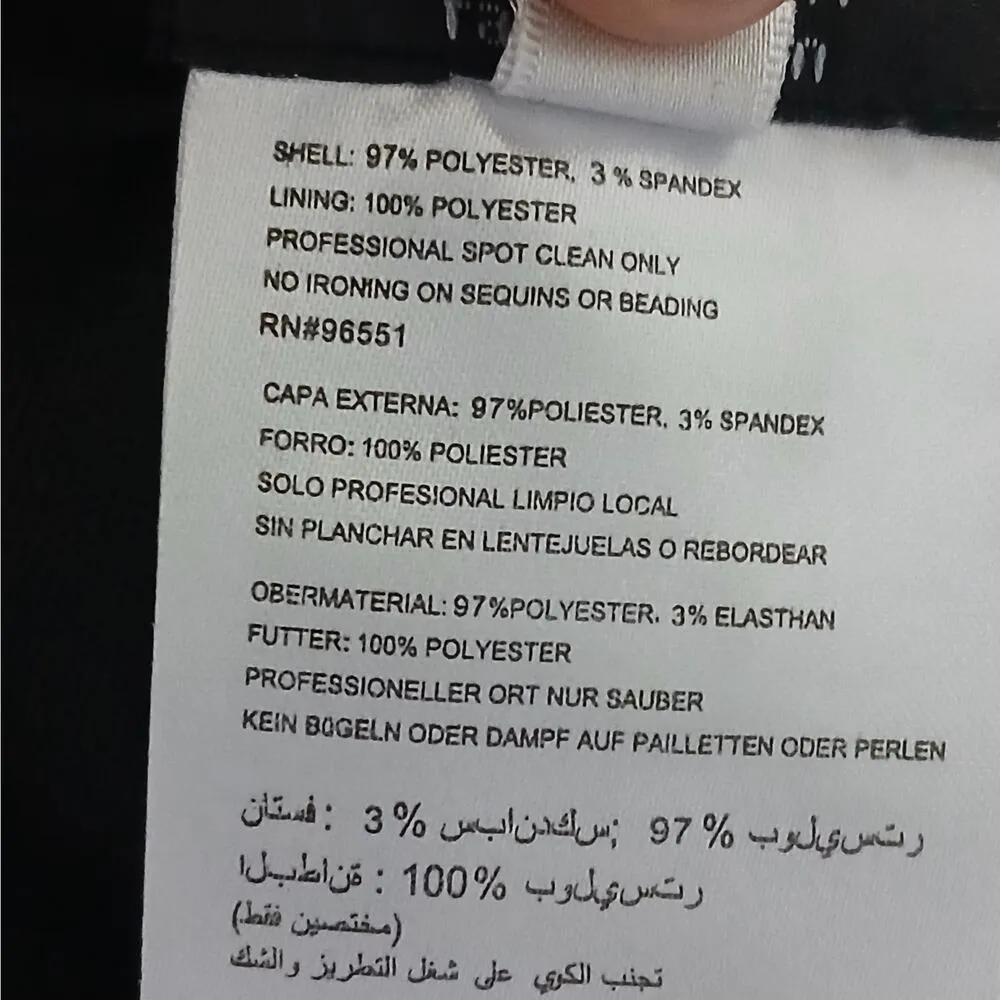 SHELL: 97% POLYESTER, 3 % SPANDEX
LINING: 100% POLYESTER
PROFESSIONAL SPOT CLEAN ONLY
NO IRONING ON SEQUINS OR BEADING
RN#96551
CAPA EXTERNA: 97%POLIESTER, 3% SPANDEX
FORRO: 100% POLIESTER
SOLO PROFESIONAL LIMPIO LOCAL
SIN PLANCHAR EN LENTEJUELAS O REBORDEAR
OBERMATERIAL: 97%POLYESTER, 3% ELASTHAN
FUTTER: 100% POLYESTER
PROFESSIONELLER ORT NUR SAUBER
KEIN BüGELN ODER DAMPF AUF PAILLETTEN ODER PERLEN
: 3% 97%
: 100%
(مختصين فقط)
تجنب الكوي على شغل التطريز والشك